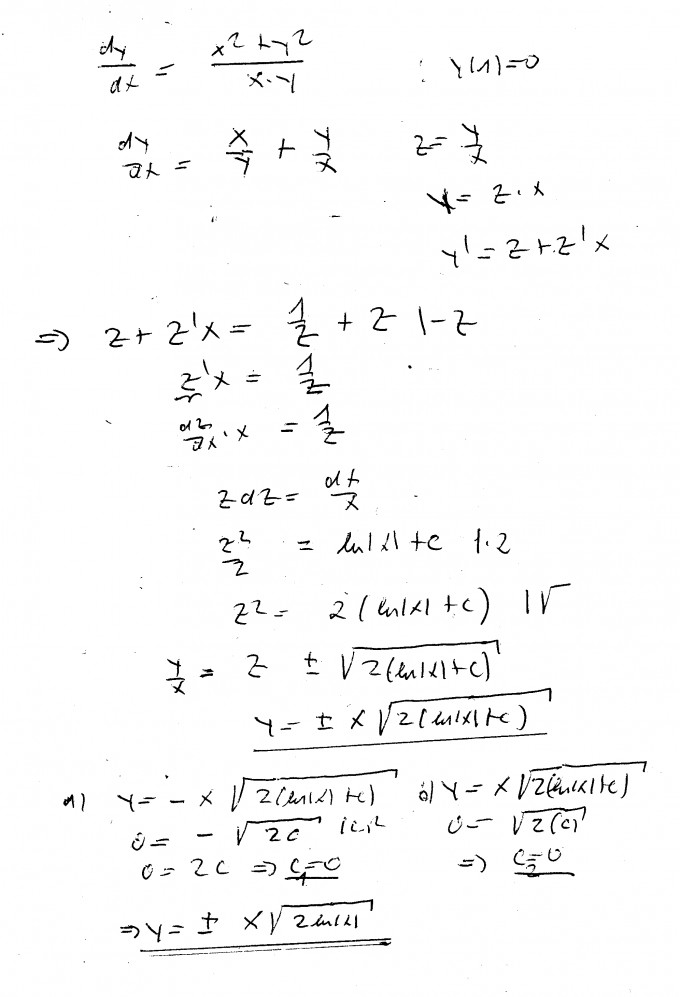 dy/dx = (x² + y²)/(x·y) : y(1)=0
dy/dx = x/y + y/x z = y/x
y = z·x
y' = z + z'x
=> z + z'x = 1/z + z |-z
z'x = 1/z
dz/dx · x = 1/z
z dz = dx/x
z²/2 = ln|x| + c |·2
z² = 2(ln|x| + c) |√
y/x = z ± √(2(ln|x|+c))
y = ± x √(2(ln|x|+c))
1) y = - x √(2(ln|x|+c)) 2) y = x √(2(ln|x|+c))
0 = - √(2c) |( )² 0 = √(2(c))
0 = 2c => c₁=0 => c₂=0
=> y = ± x √(2 ln|x|)